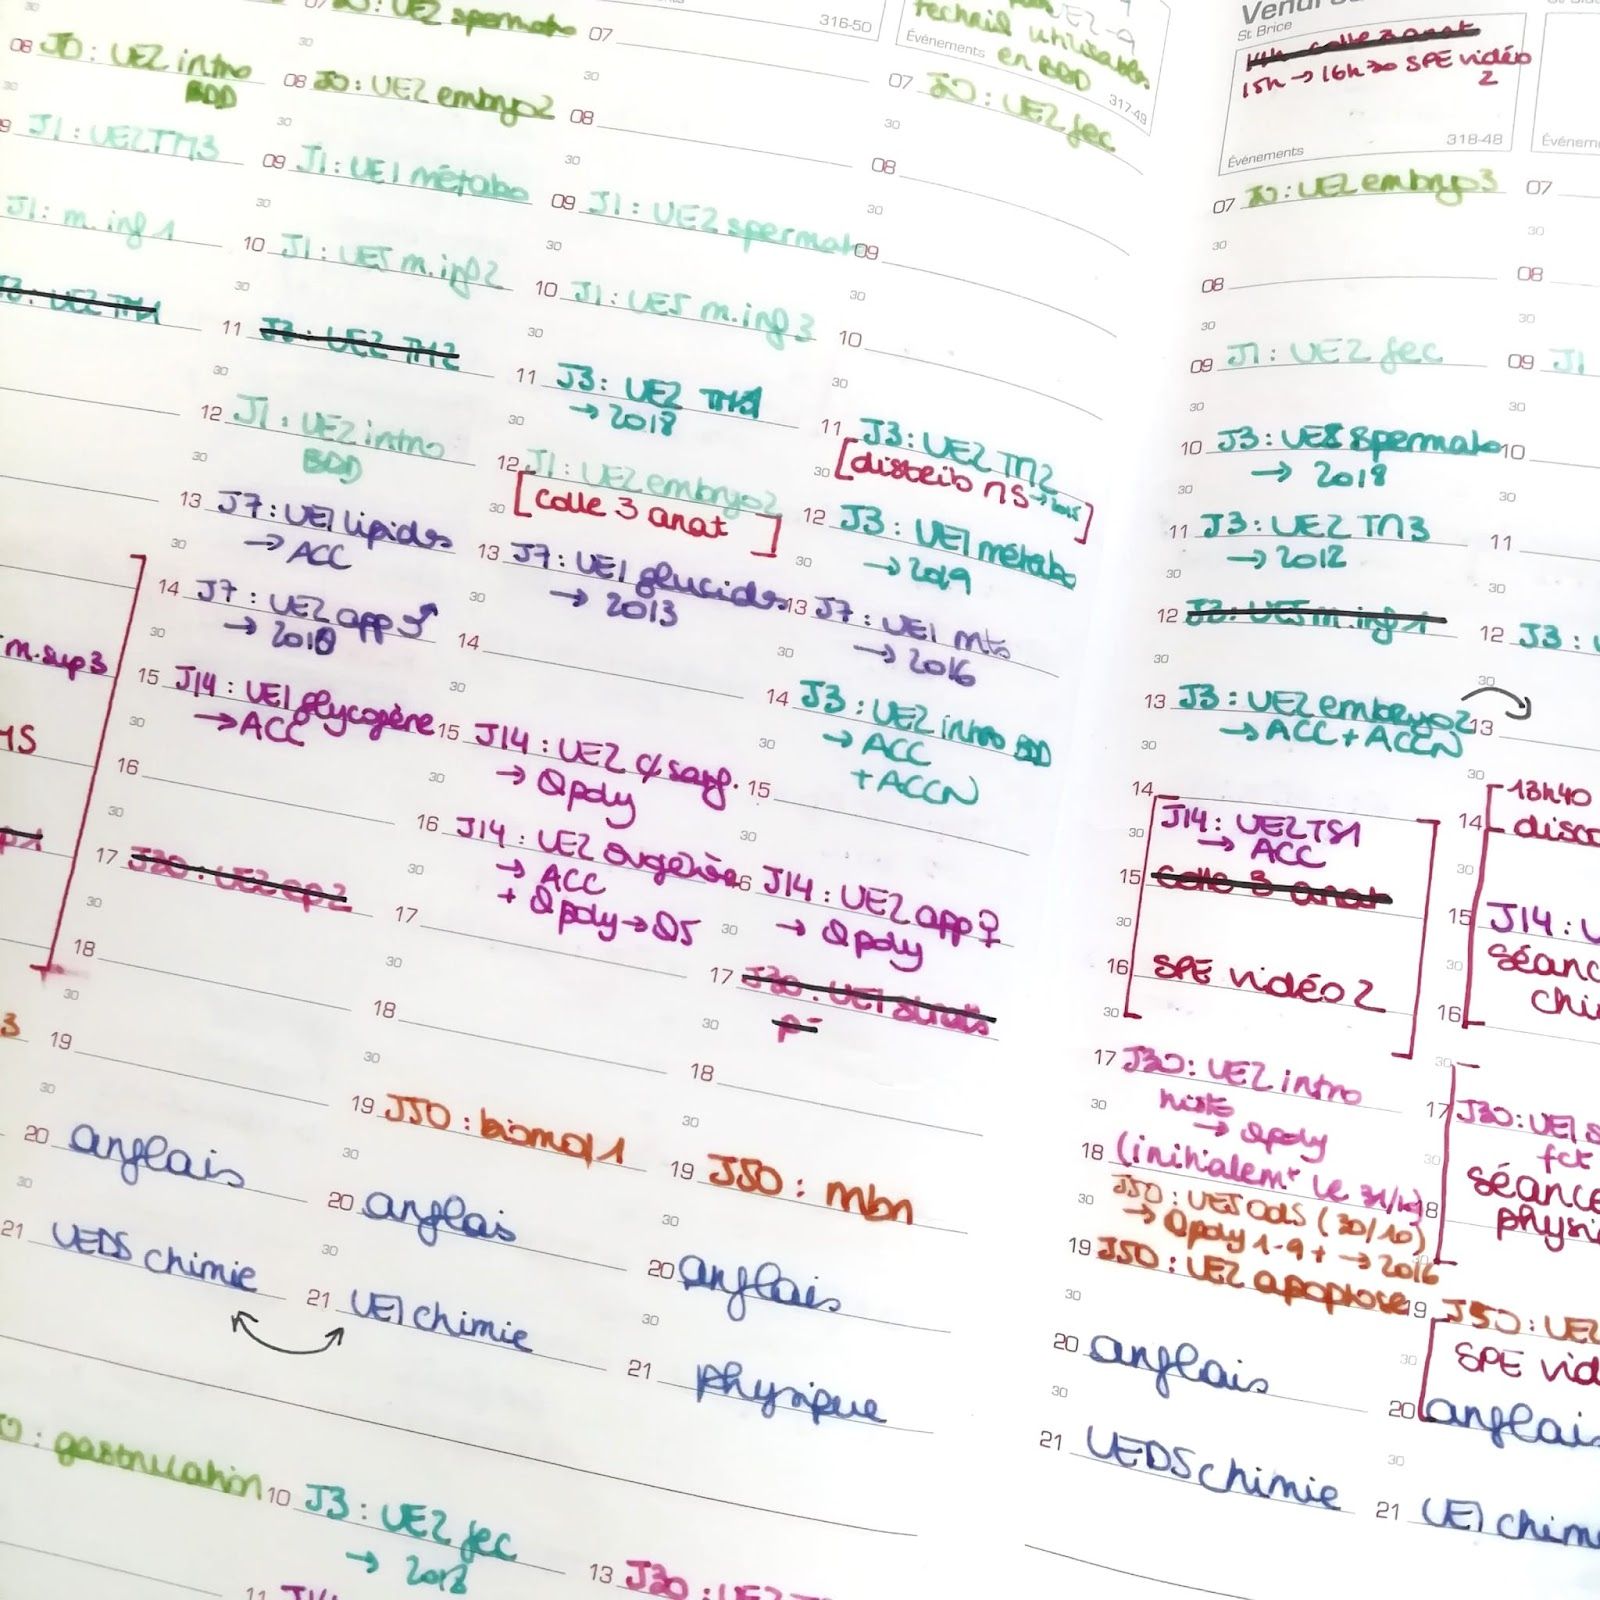 08 J0 : UE2 intro
BDD
09 J1 : UE2 TM3
J1 : m. inf 1
m. sup 3
19
20 anglais
21 UEDS chimie
07 J0 : UE2 spermato
30
08 J0 : UE2 embryo 2
30
09 J1 : UE1 métabo
30
10 J1 : UE5 m. inf 2
30
11 J3 : UE2 TM2
30
12 J1 : UE2 intro
BDD
30
13 J7 : UE1 lipides
→ ACC
30
14 J7 : UE2 app ♂
→ 2018
30
15 J14 : UE1 glycogène
→ ACC
30
16
30
17 J30 : UE2 ep2
30
18
30
19 J50 : biomol 1
30
20 anglais
30
21 UE1 chimie
316-50
07
30
08
30
09 J1 : UE2 spermato
30
10 J1 : UE5 m. inf 3
30
11 J3 : UE2 TM1
→ 2018
30
12 J1 : UE2 embryo 2
30 [colle 3 anat]
13 J7 : UE1 glucides
→ 2013
30
14
30
15 J14 : UE2
→ Qpoly
30
16 J14 : UE2 ovogenèse
→ ACC
30 + Qpoly → Q5
17
30
18
30
19 J50 : mbn
30
20 anglais
30
21 physique
technis utilisables
Événements en BDD
317-49
07 J0 : UE2 fec
30
08
30
09
30
10
30
11 J3 : UE2 TM2
30 [distrib MS
12 J3 : UE1 métabo
30 → 2019
13 J7 : UE1 mts
30 → 2016
14 J3 : UE2 intro BDD
30 → ACC
+ ACCN
15
30
16 J14 : UE2 app ♀
30 → Qpoly
17 J30 : UE1
30
18
St Brice
14h colle 3 anat
15h → 16h30 SPE vidéo
2
Événements
318-48
07 J0 : UE2 embryo 3
30
08
30
09 J1 : UE2 fec
30
10 J3 : UE2 spermato
→ 2018
30
11 J3 : UE2 TM3
→ 2012
30
12 J3 : UE5 m. inf 1
30
13 J3 : UE2 embryo 2
→ ACC + ACCN
30
14 J14 : UE2 TS1
30 → ACC
15 colle 3 anat
30
16 SPE vidéo 2
30
17 J30 : UE2 intro
30 histo
→ Qpoly
18 (initialemt le 31/10)
30 J50 : UE5 OdLS (30/10)
→ Qpoly 1-9 + → 2016
19 J50 : UE2 apoptose
30
20 anglais
30
21 UEDS chimie
Événem
07
30
08
30
09 J1
30
10
30
11
30
12 J3 :
30
13
30
13h40
14
30
15 J14 :
30 séance
16
30
17 J30 : UE1
30 fct
séance
18
19 J50 : UE2
30 SPE
20 anglais
30
21 UE1 chim
: gastrulation
10 J3 : UE2 fec
→ 2018
11
13 J30 : UE2